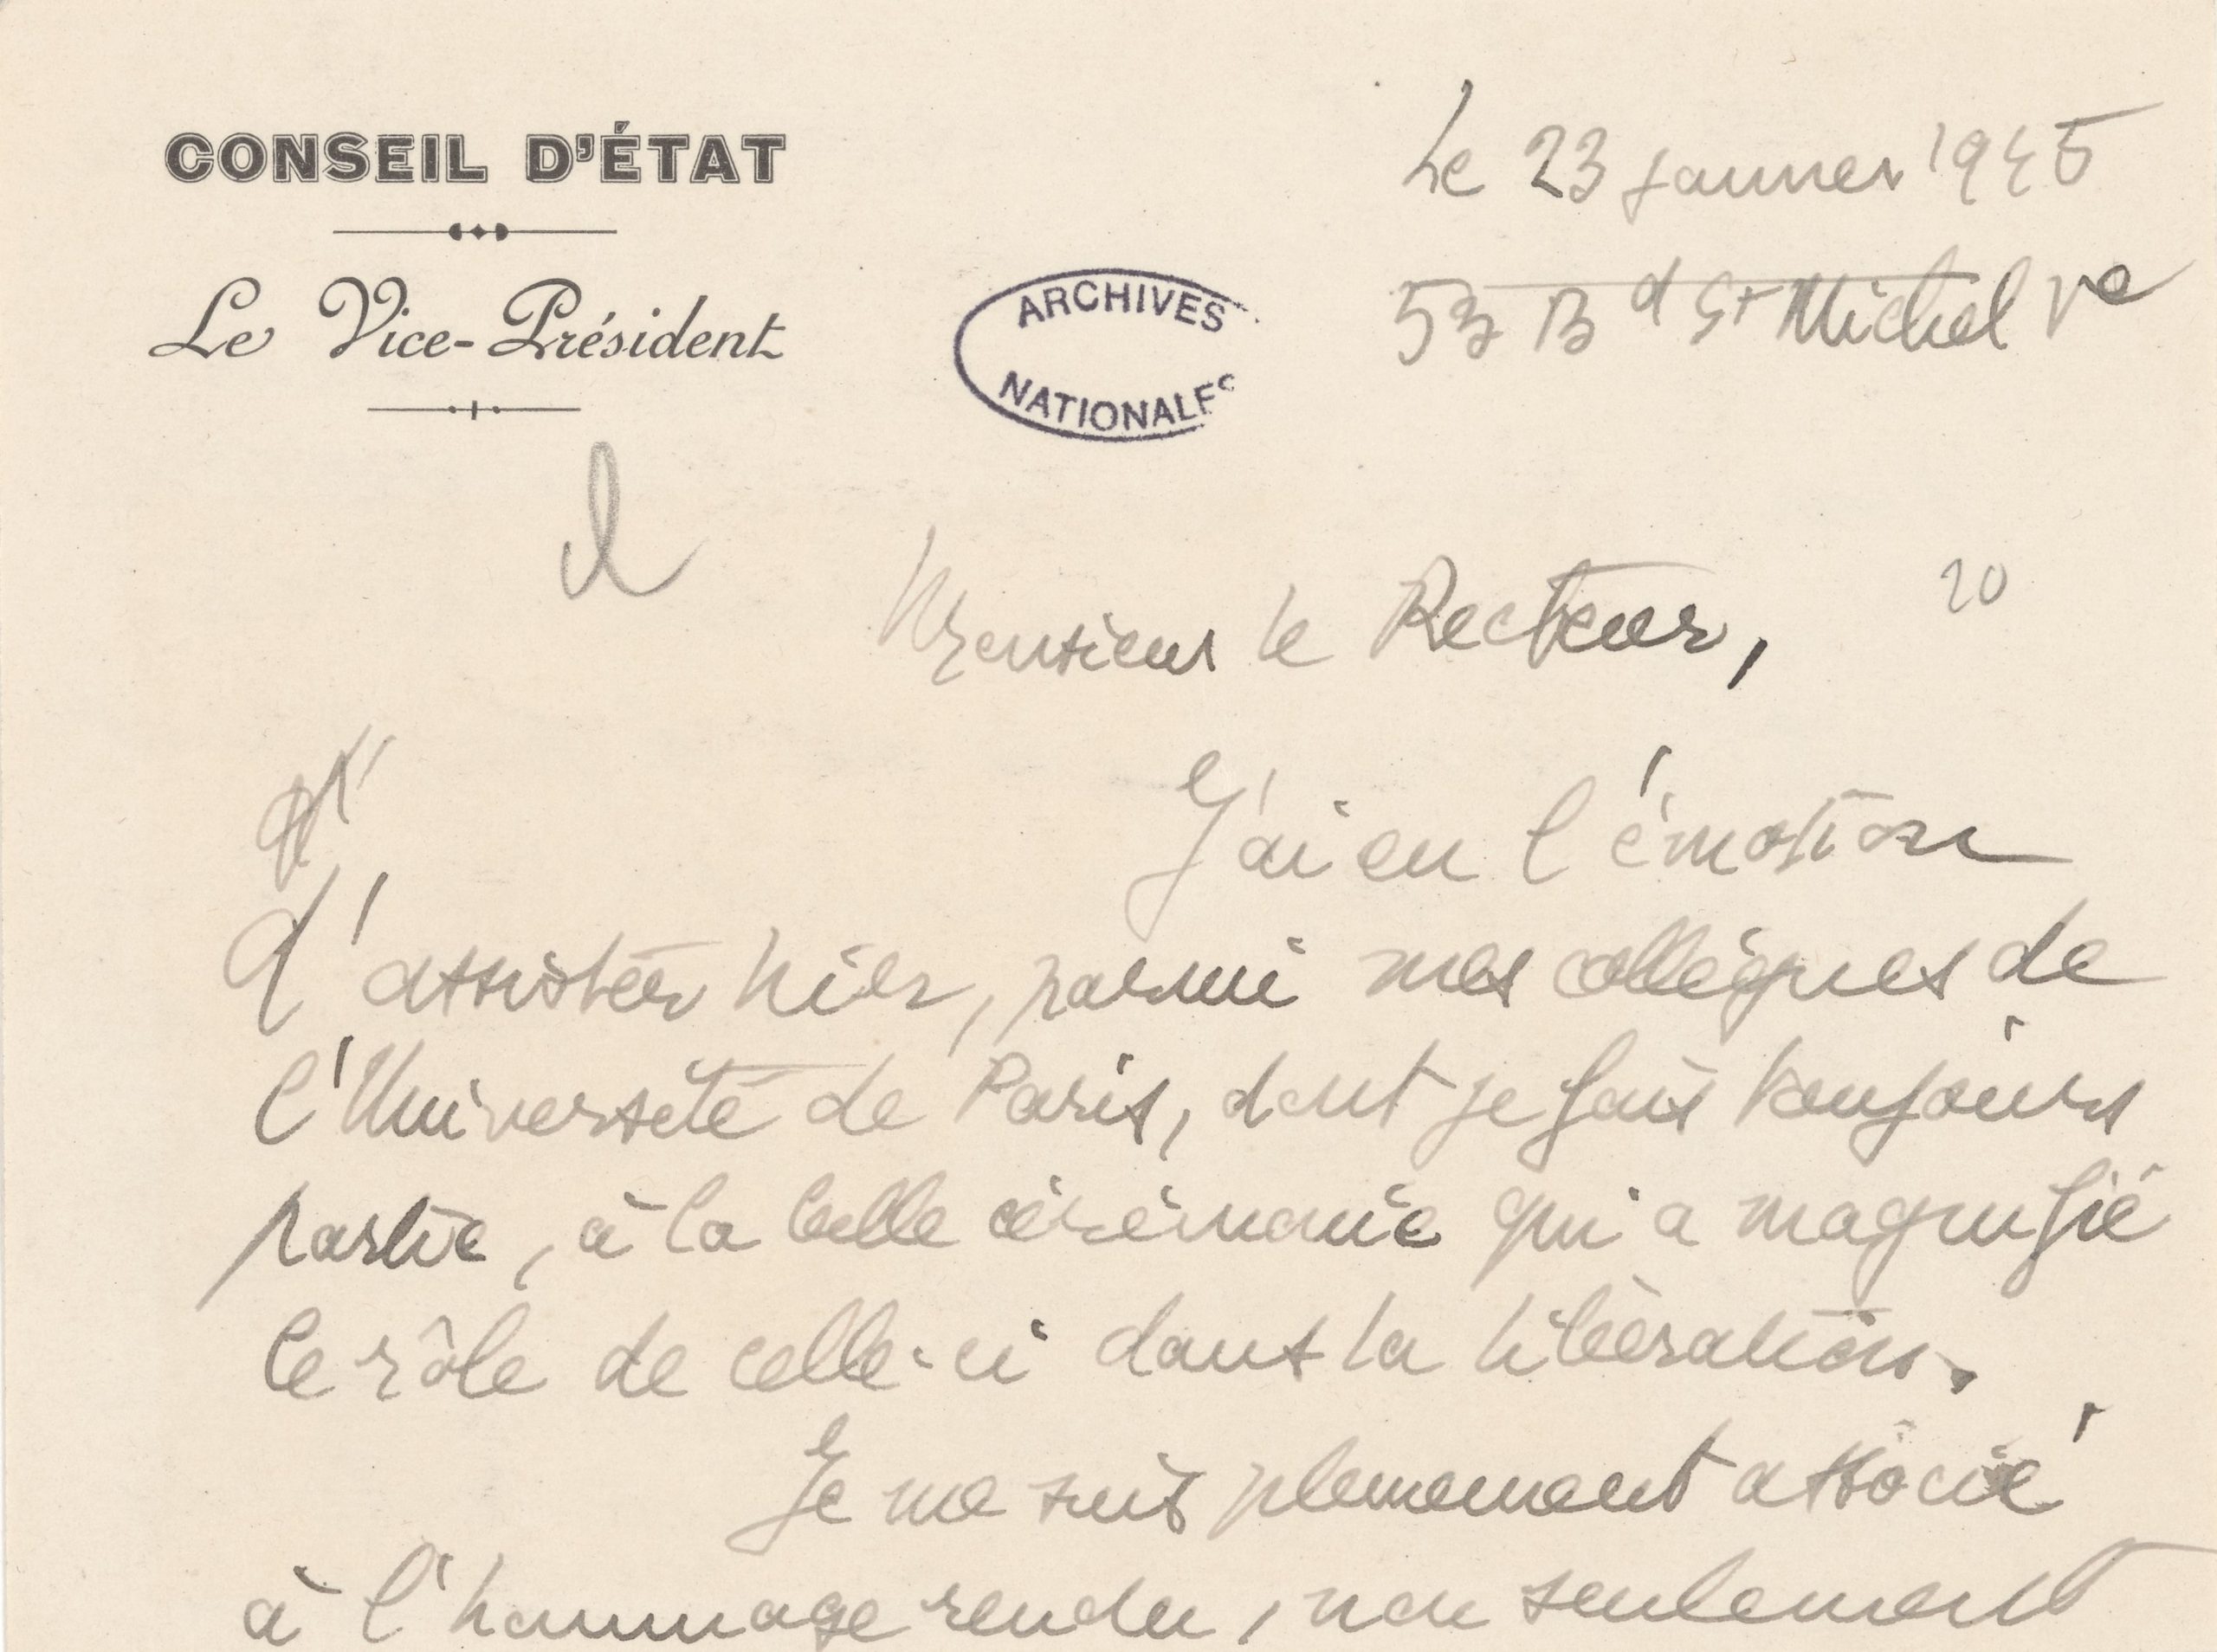 CONSEIL D'ÉTAT
Le Vice-Président
Le 23 janvier 1945
53 Bd St Michel Ve
ARCHIVES
NATIONALES
Monsieur le Recteur,
20
J'ai eu l'émotion
d'assister hier, parmi mes collègues de
l'Université de Paris, dont je fais toujours
partie, à la belle cérémonie qui a magnifié
le rôle de celle-ci dans la libération.
Je me suis pleinement associé
à l'hommage rendu, non seulement